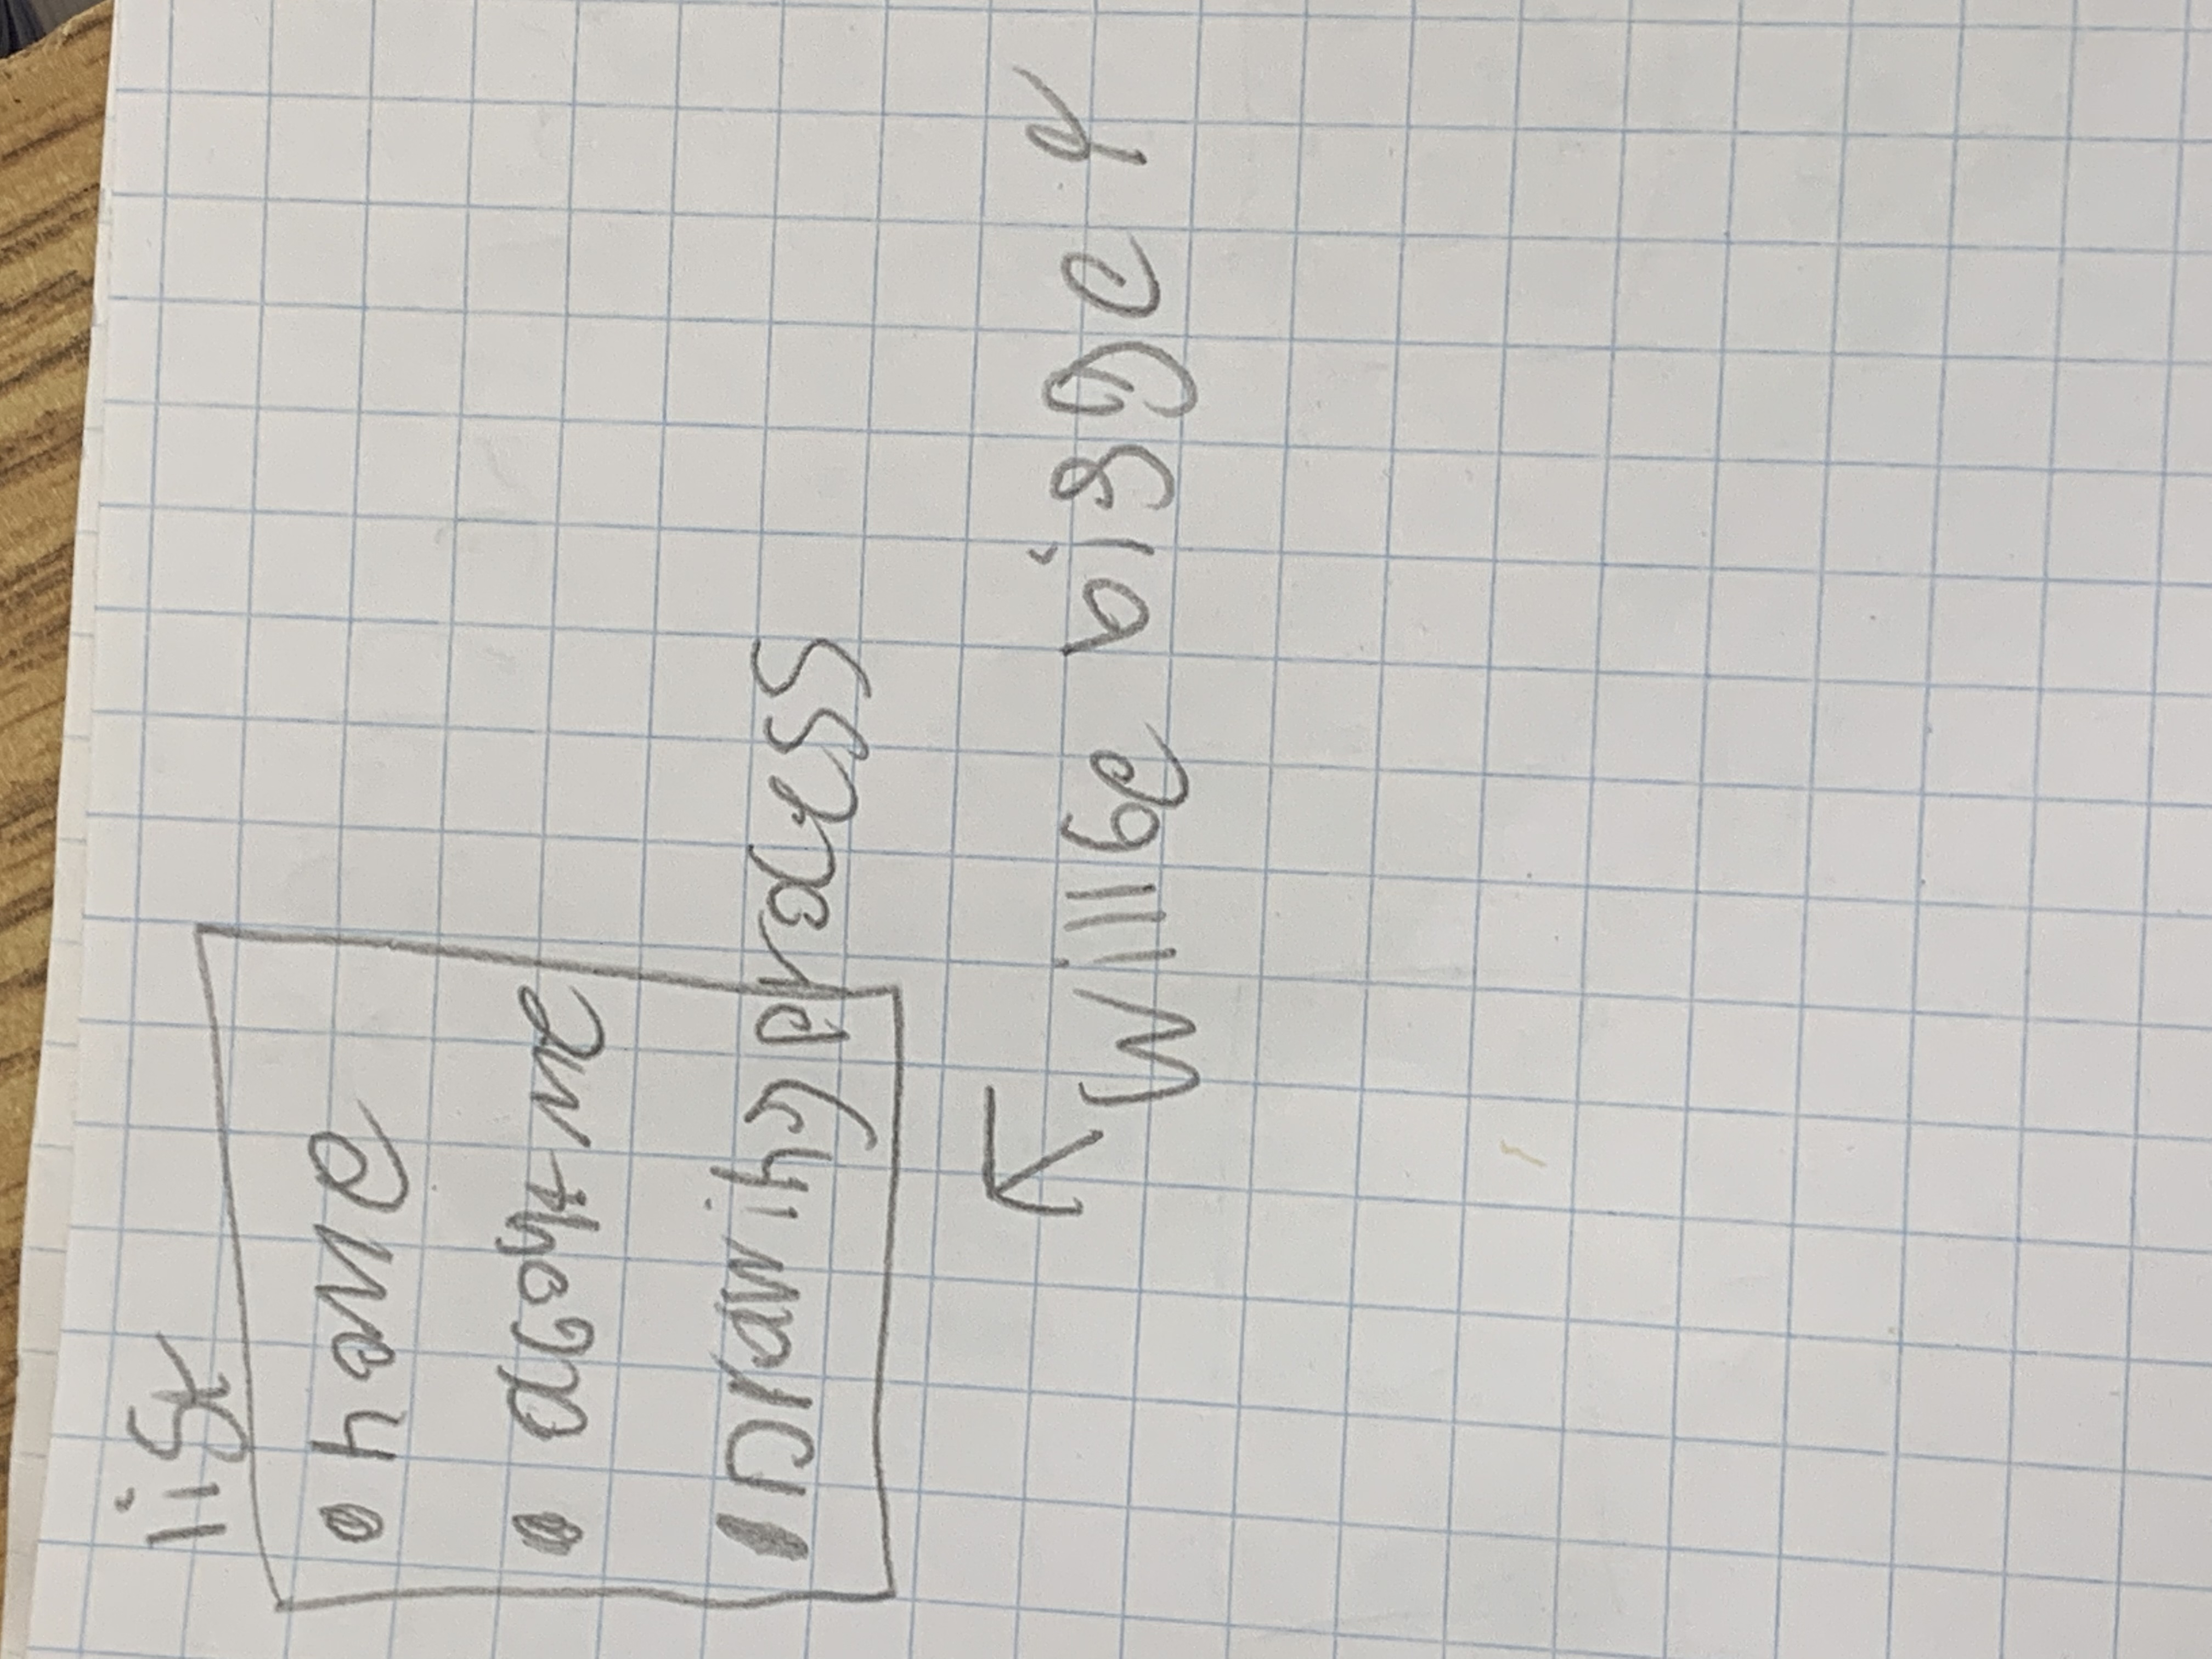 list
• home
• about me
• Drawing process
will be bigger